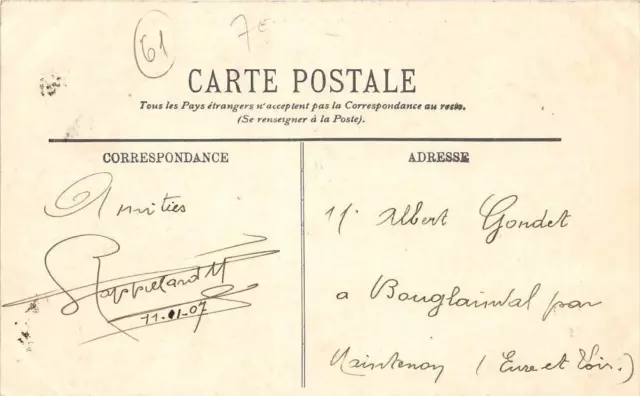 61
7€
CARTE POSTALE
Tous les Pays étrangers n'acceptent pas la Correspondance au recto.
(Se renseigner à la Poste).
CORRESPONDANCE
Amitiés
11-01-07
ADRESSE
M. Albert Gondet
a Bouglainval par
Maintenon (Eure et Loir.)